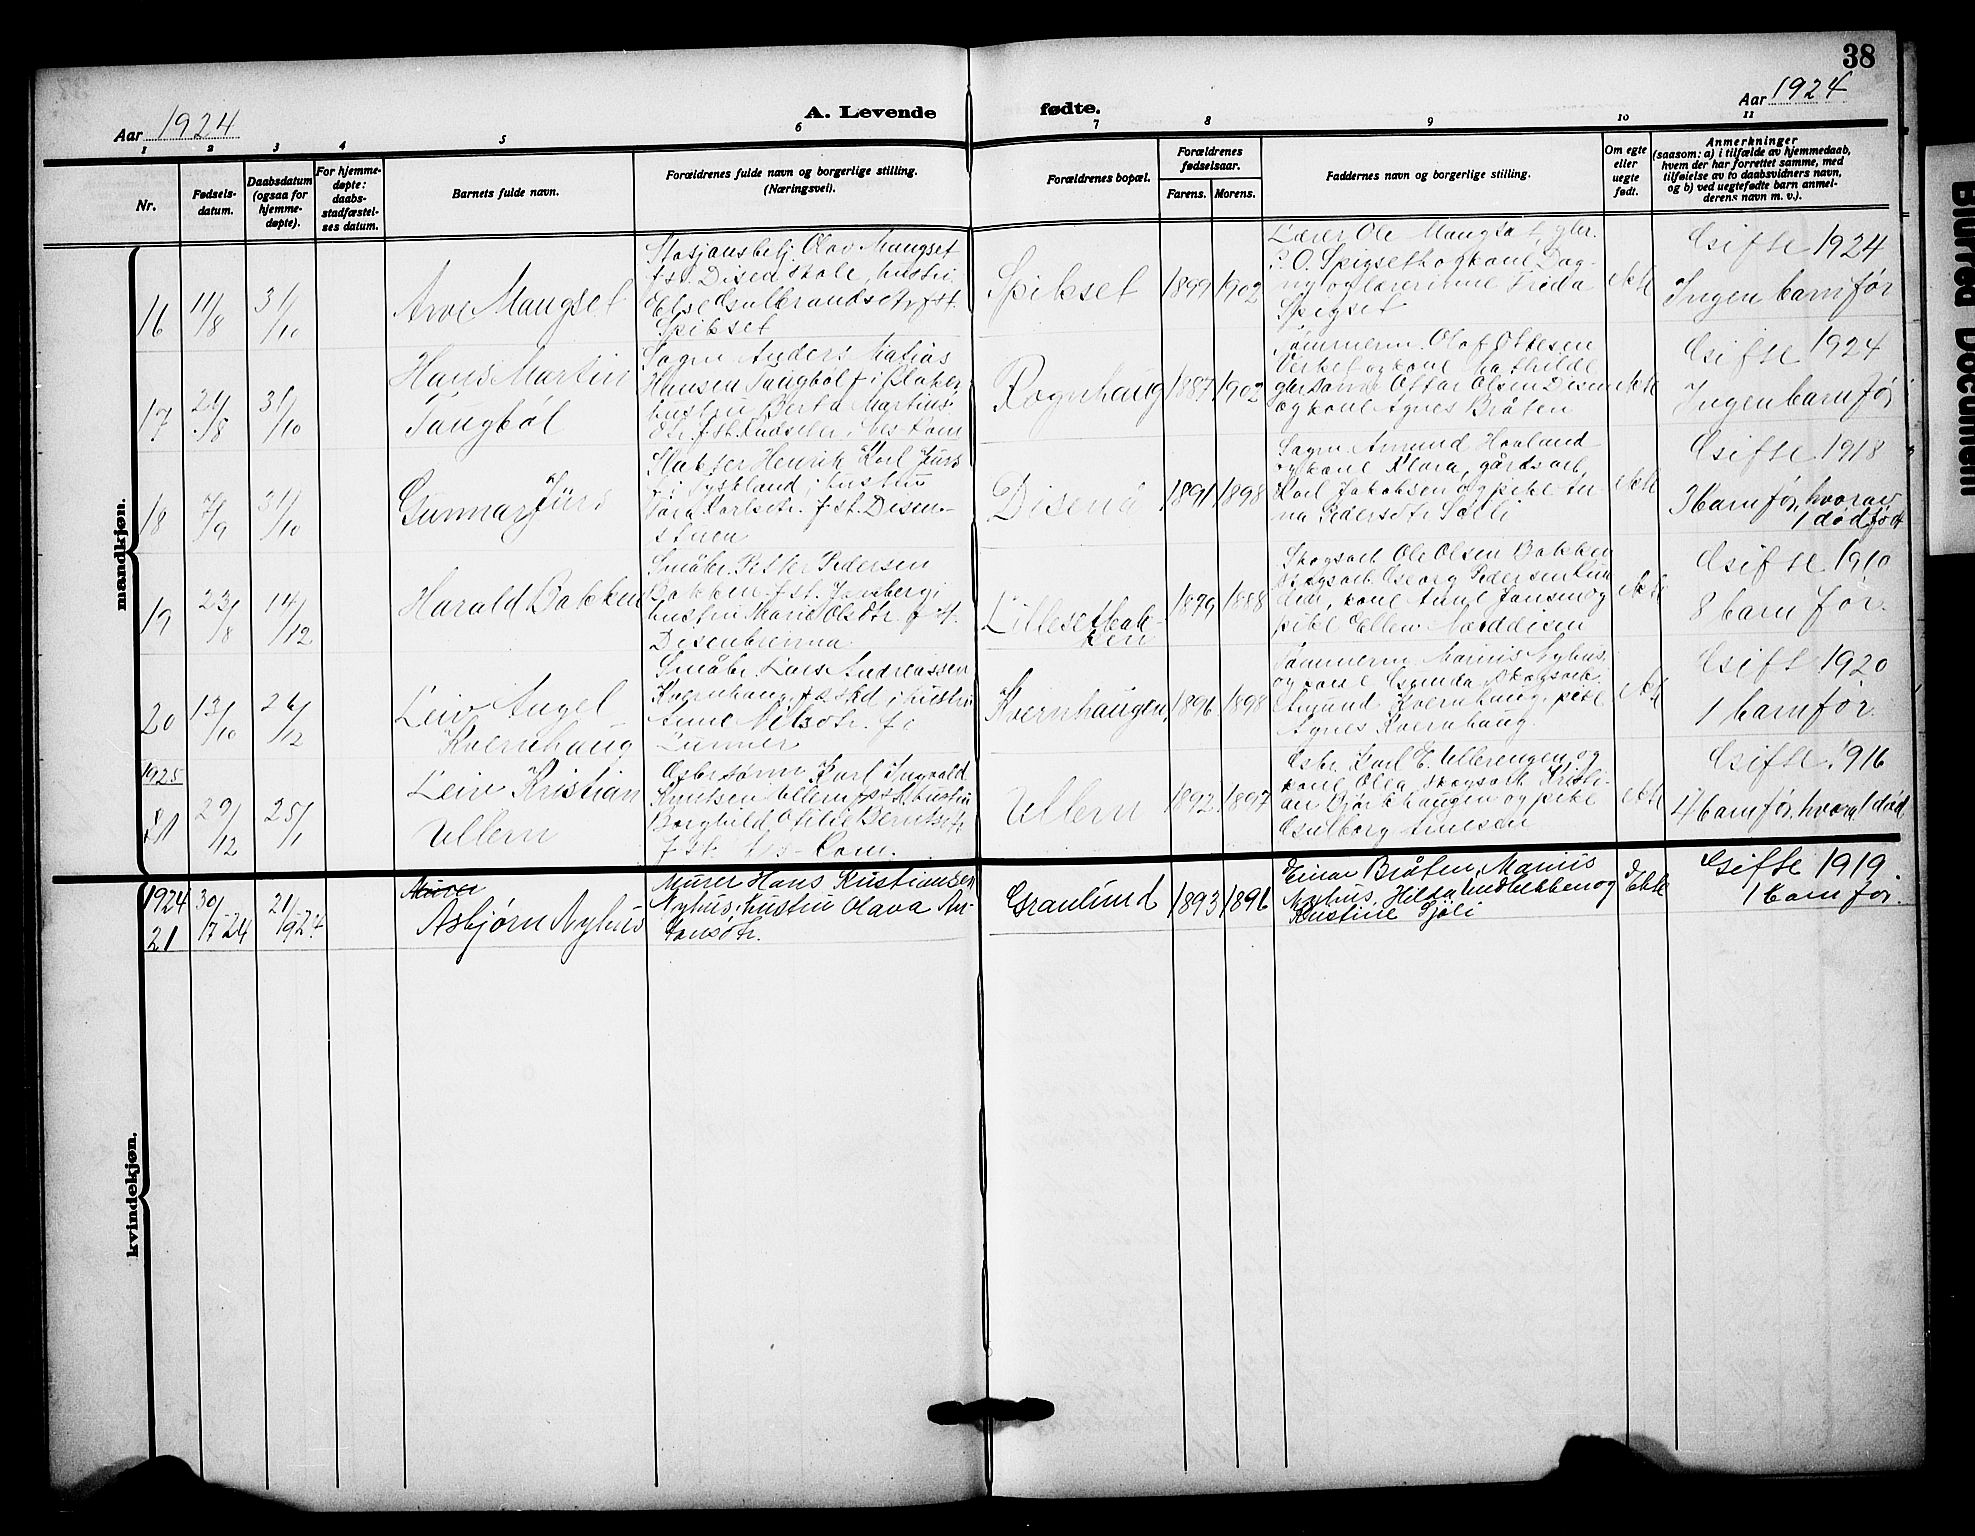 38
Aar 1924
A. Levende fødte.
Aar 1924
1 2 3 4 5 6 7 8 9 10 11
Nr.
Fødsels-
datum.
Daabsdatum
(ogsaa for
hjemme-
døpte).
For hjemme-
døpte:
daabs-
stadfæstel-
ses datum.
Barnets fulde navn.
Forældrenes fulde navn og borgerlige stilling.
(Næringsvei).
Forældrenes bopæl.
Forældrenes
fødselsaar.
Farens. Morens.
Faddernes navn og borgerlige stilling.
Om egte
eller
uegte
født.
Anmerkninger
(saasom: a) i tilfælde av hjemmedaab,
hvem der har forrettet samme, med
tilføielse av to daabsvidners navn,
og b) ved uegtefødte barn anmel-
derens navn m. v.).
mandkjøn.
16
11/8
31/10
Arve Mangset
Stasjonsbetj. Olav Mangset
f. st. Disen skole, hustru
Else Gulbrandsdtr. f. st.
Spikset
Spikset
1899 1902
Lærer Ole Mangset, gbr.
P. O. Spigseth og kone Dag-
ny og lærerinne Frida
Spigset
ekte
Gifte 1924
Ingen barn før
17
21/8
31/10
Hans Martin
Tangböl
Sagm. Anders Matias
Hansen Tangböl f. i Blaker
hustru Berta Martins-
dtr. f. st.
Rognhaug
1887 1902
Tömmerm. Olaf Ottesen
Verket og kone Mathilde
Oskar Olsen Disen
og kone Agnes Bråten
ekte
Gifte 1924
Ingen barn før
18
7/9
31/10
Gunnar Jürs
Slakter Henrik Karl Jürs
f. i Tyskland, hustru
Tora Karlsdtr. f. st. Disen-
stuen
Disenå
1891 1898
Sagm. Amund Hovland
og kone Klara, gårdsarb.
Karl Jakobsen og pike An-
na Pedersdtr. Sætli
ekte
Gifte 1918
3 barn før, hvorav
1 dødfødt
19
23/8
14/12
Harald Bakken
Småbr. Petter Pedersen
Bakken f. st. Jansberg i
hustru Marie Olsdtr. f. st.
Disenbrenna
Lillesetbak-
ken
1879 1888
Skogsarb. Ole Olsen Bakken
skogsarb. Georg Pedersen Lun-
den, kone Anne Jansen og
pike Ellen Norddisen
ekte
Gifte 1910
8 barn før.
20
13/10
26/12
Leiv Angel
Kvernhaug
Småbr. Lars Andreassen
Kvernhaug, f. st. sted, hustru
Anne Nilsdtr. f. i
Lunner
Kvernhaugen
1896 1898
Tømmerm. Marius Nyhus
og kone Gunda, skogsarb.
Amund Kvernhaug, pike
Agnes Kvernhaug
ekte
Gifte 1920
1 barn før.
1925
29/12
25/1
Leiv Kristian
Ullern
Gbr. sønn Karl Ingvald
Knutsen Ullern f. st. st., hustru
Borghild Otilie Berntsdtr.
Ullern
1892 1897
Gbr. Karl E. Ullerengen og
kone Olea, skogsarb. Kristi-
an Bjørkhaugen og pike
Gulborg Amlsen
ekte
Gifte 1916
4 barn før, hvorav 1 død
kvindekjøn.
1924
21
30/17-24
21/9 1924
Murer
Asbjørn Nyhus
Murer Hans Kristiansen
Nyhus, hustru Olava An-
tonsdtr.
Granlund
1893 1896
Einar Bråten, Marius
Nyhus, Hilda Lindbekken og
Kristine Sjøli
Ekte
Gifte 1919
1 barn før.